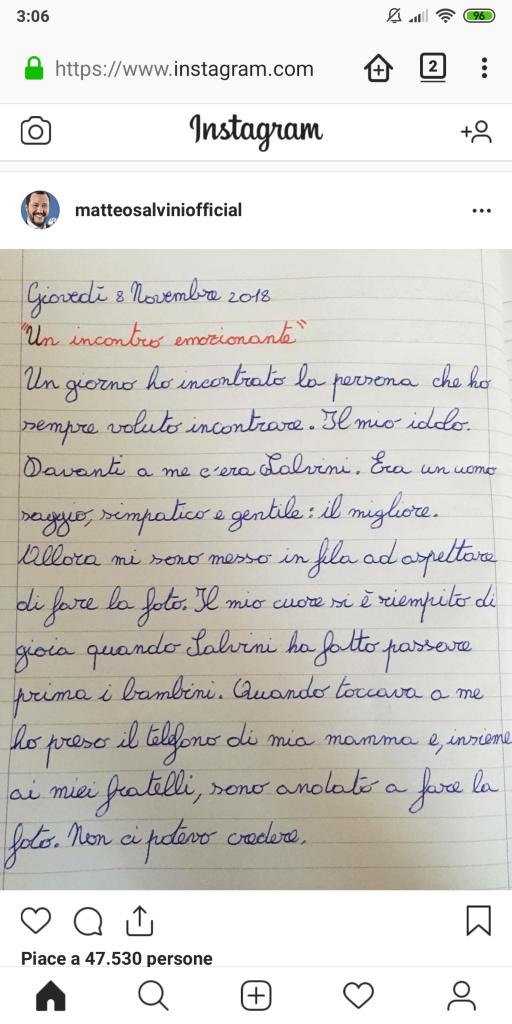 3:06
96
https://www.instagram.com
2
Instagram
matteosalviniofficial
Giovedì 8 Novembre 2018
"Un incontro emozionante"
Un giorno ho incontrato la persona che ho
sempre voluto incontrare. Il mio idolo.
Davanti a me c'era Salvini. Era un uomo
saggio, simpatico e gentile: il migliore.
Allora mi sono messo in fila ad aspettare
di fare la foto. Il mio cuore si è riempito di
gioia quando Salvini ha fatto passare
prima i bambini. Quando toccava a me
ho preso il telefono di mia mamma e, insieme
ai miei fratelli, sono andato a fare la
foto. Non ci potevo credere.
Piace a 47.530 persone